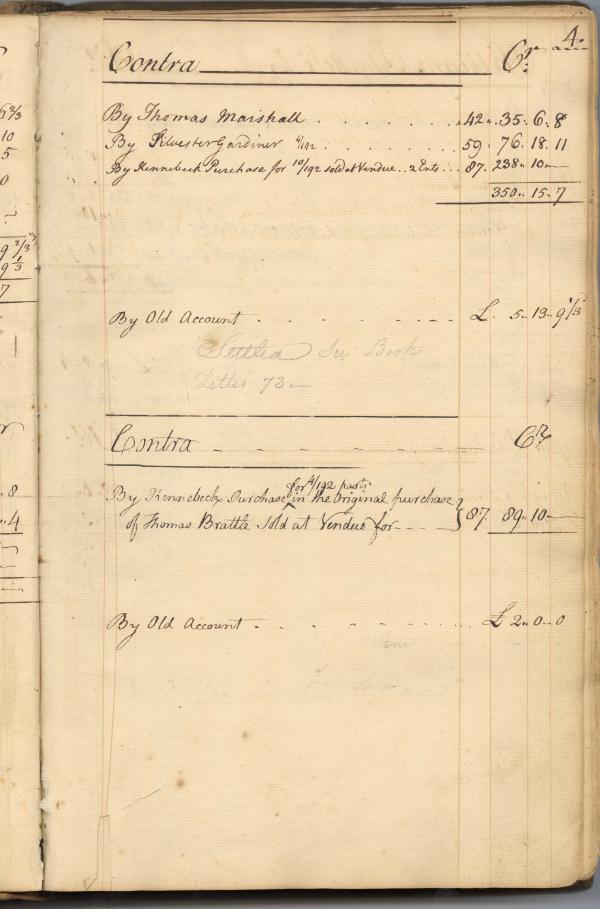 4
Contra Cr
By Thomas Marshall . . . . . . 42 „ 35 „ 6 „ 8
By Silvester Gardiner 4/192 . . . . . . 59 „ 76 „ 18 „ 11
By Kennebeck Purchase for 10/192 sold at Vendue . . 2 Ents . . 87 „ 238 „ 10 „ —
350 „ 15 „ 7
By Old Account . . . . . . £ 5 „ 13 „ 9 1/3
Settled See Book
Letter 73
Contra Cr
for 4/192 parts
By Kennebeck Purchase ^ in the Original purchase
of Thomas Brattle Sold at Vendue for - - - } 87 89 „ 10 „ —
By Old Account . . . . . . £ 2 „ 0 „ 0